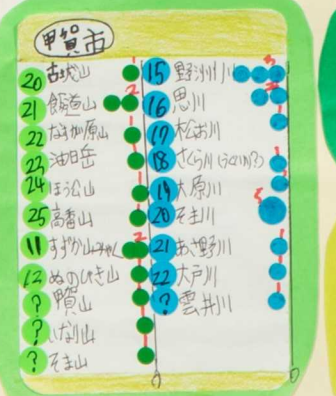 甲賀市
20 古城山
21 飯道山
22 なすが原山
23 油日岳
24 ほう公山
25 高畚山
11 すずか山みゃく
12 ぬのひき山
? 甲賀山
? いなり山
? そま山
15 野洲川 3
16 思川 2
17 松お川
18 さくら川(うぐい?)
19 大原川
20 そま川 5
21 あさ野川
22 大戸川
? 雲井川